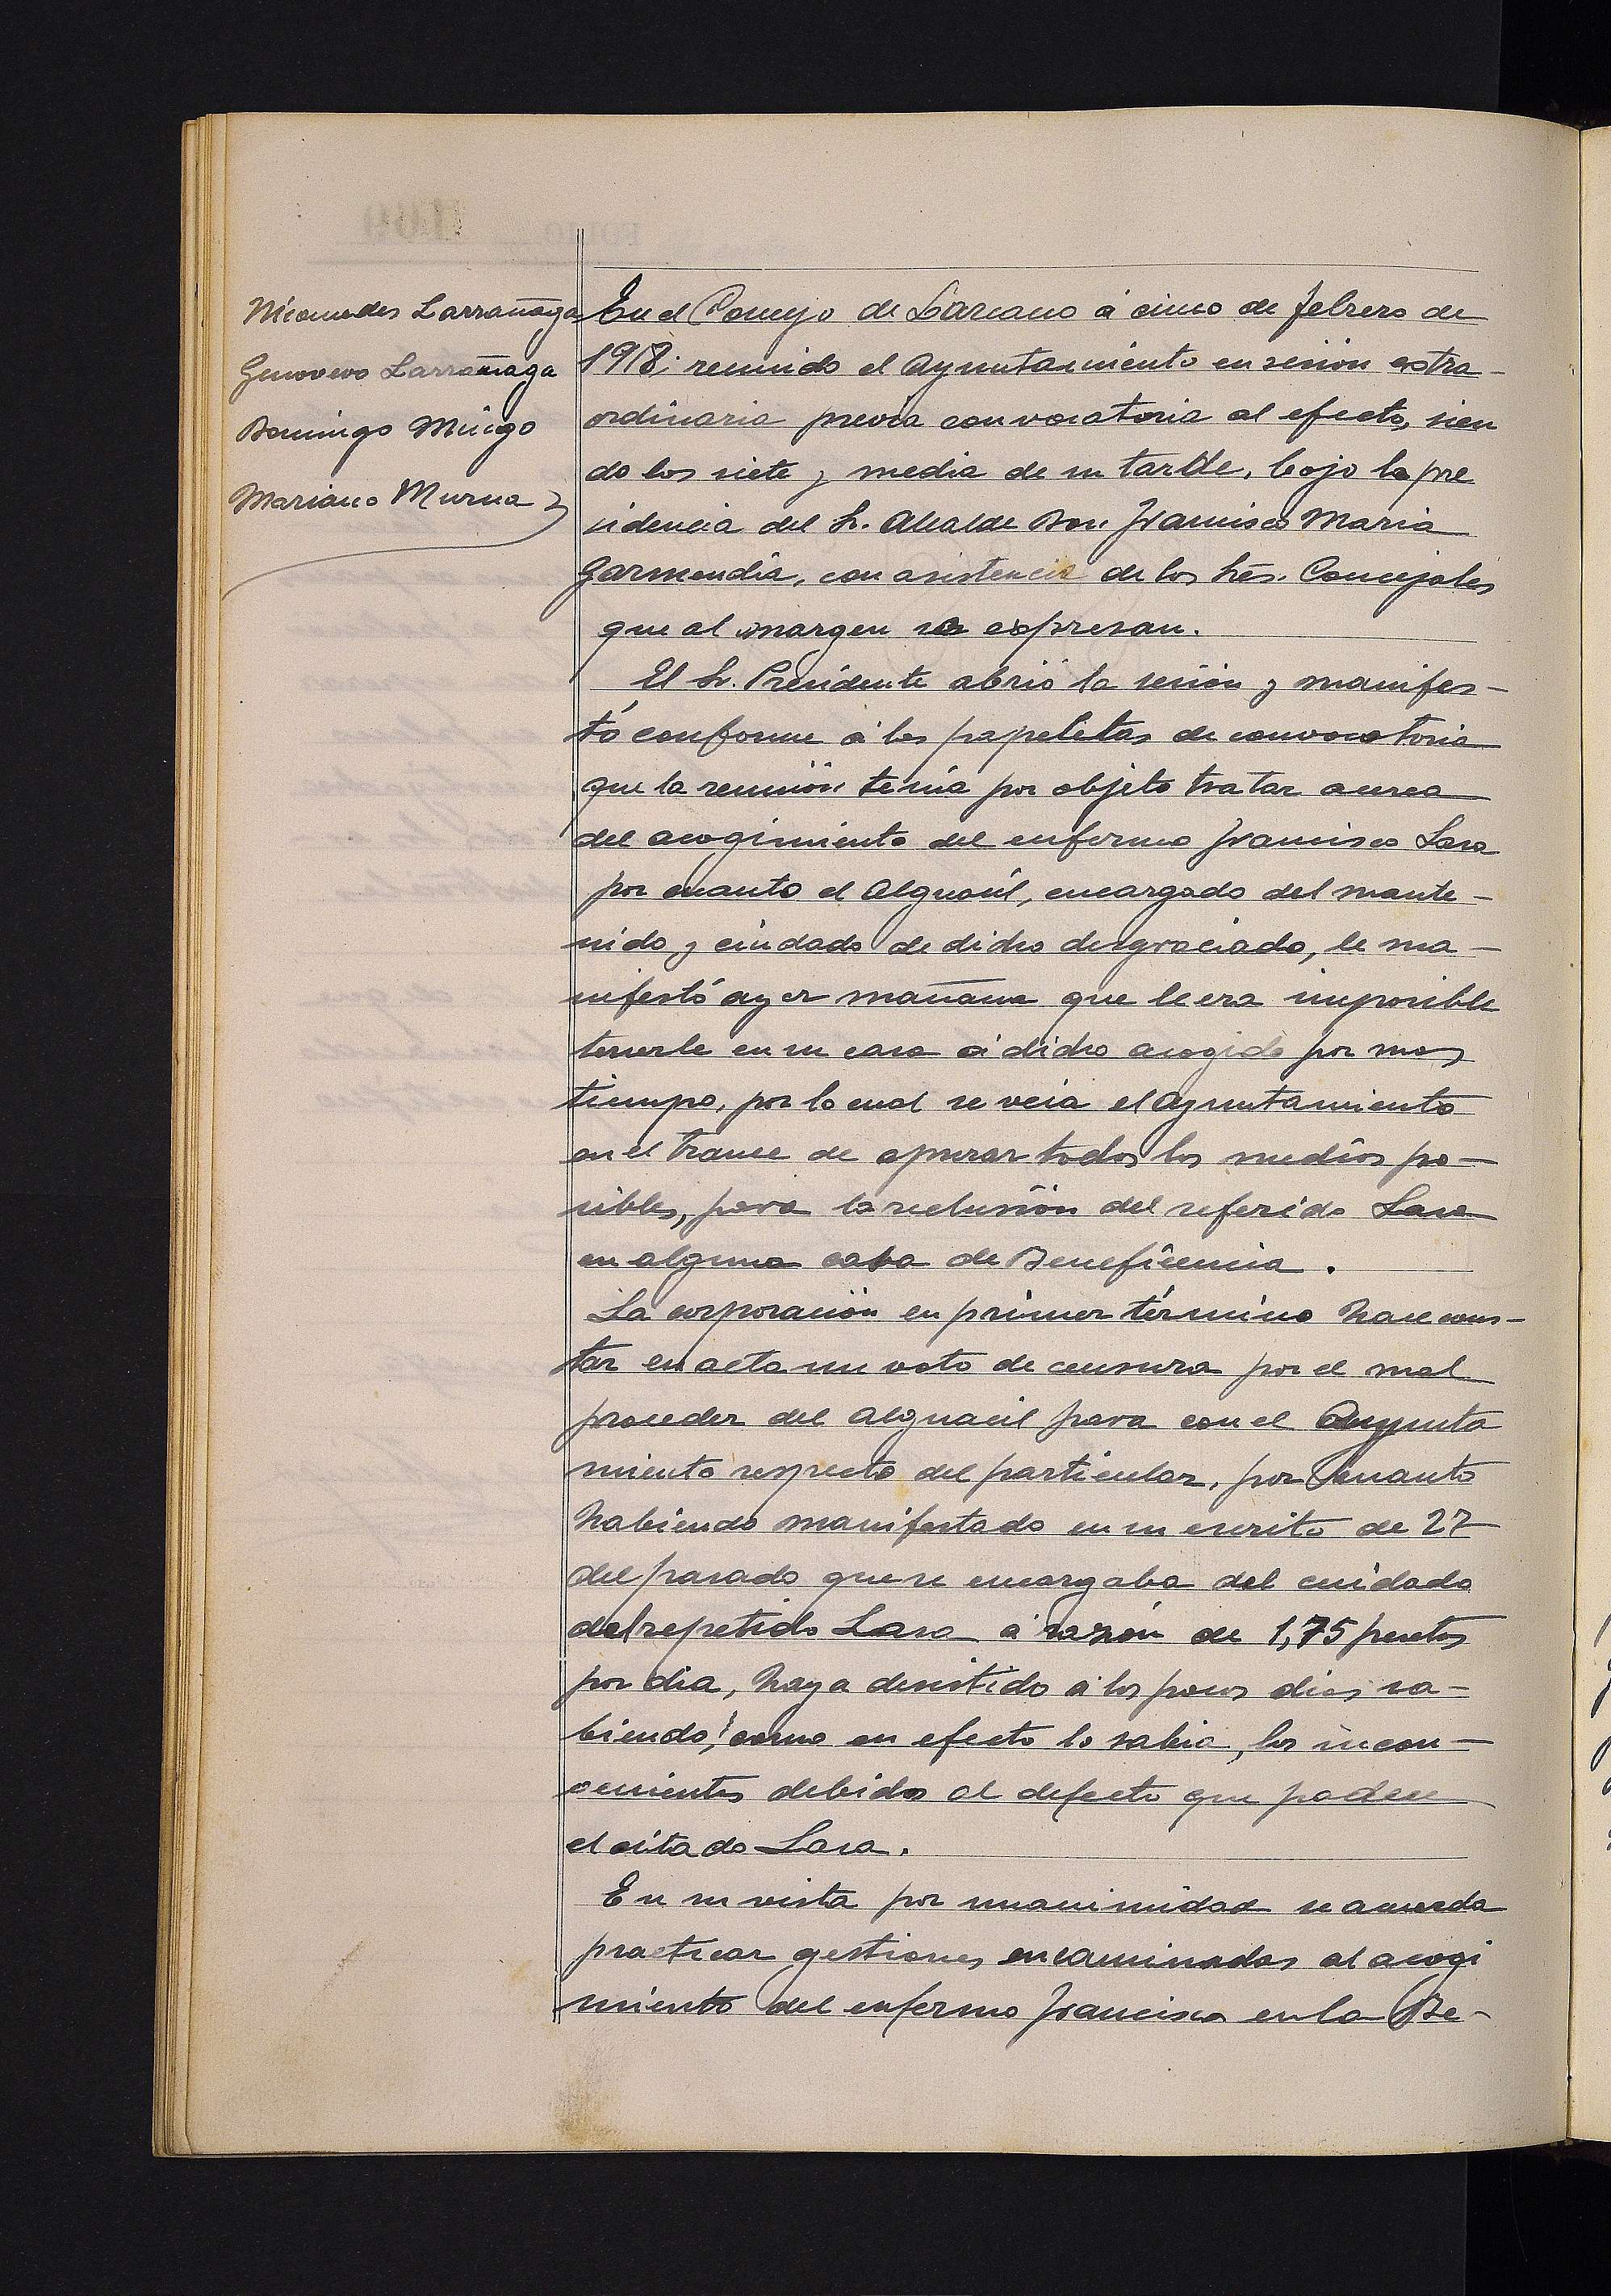 Nicomedes Larrañaga
Genovevo Larrañaga
Domingo Múgo
Mariano Murua
En el Concejo de Lazcano á cinco de febrero de
1918; reunido el Ayuntamiento en sesión extra-
ordinaria previa convocatoria al efecto, sien
do los siete y media de su tarde, bajo la pre
sidencia del Sr. Alcalde Don Francisco Maria
Garmendia, con asistencia de los Srés. Concejales
que al margen se expresan.
El Sr. Presidente abrió la sesión y manifes-
tó conforme á las papeletas de convocatoria
que la reunión tenía por objeto tratar acerca
del acogimiento del enfermo Francisco Lasa
por cuanto el Alguacil, encargado del mante-
nido y cuidado de dicho desgraciado, le ma-
nifestó ayer mañana que le era imposible
tenerle en su casa á dicho acogido por mas
tiempo, por lo cual se veía el Ayuntamiento
en el trance de apurar todos los medios po-
sibles, para la reclusión del referido Lasa
en alguna casa de Beneficencia.
La corporación en primer término hace cons-
tar en acta un voto de censura por el mal
proceder del alguacil para con el Ayunta
miento respecto del particular, por cuanto
habiendo manifestado en su escrito de 27
del pasado que se encargaba del cuidado
del repetido Lasa á razón de 1,75 pesetas
por dia, haya desistido á los pocos dias sa-
biendo, como en efecto lo sabia, los incon-
venientes debidos al defecto que padece
el citado Lasa.
En su vista por unanimidad se acuerda
practicar gestiones encaminadas al acogi
miento del enfermo Francisco en la Be-